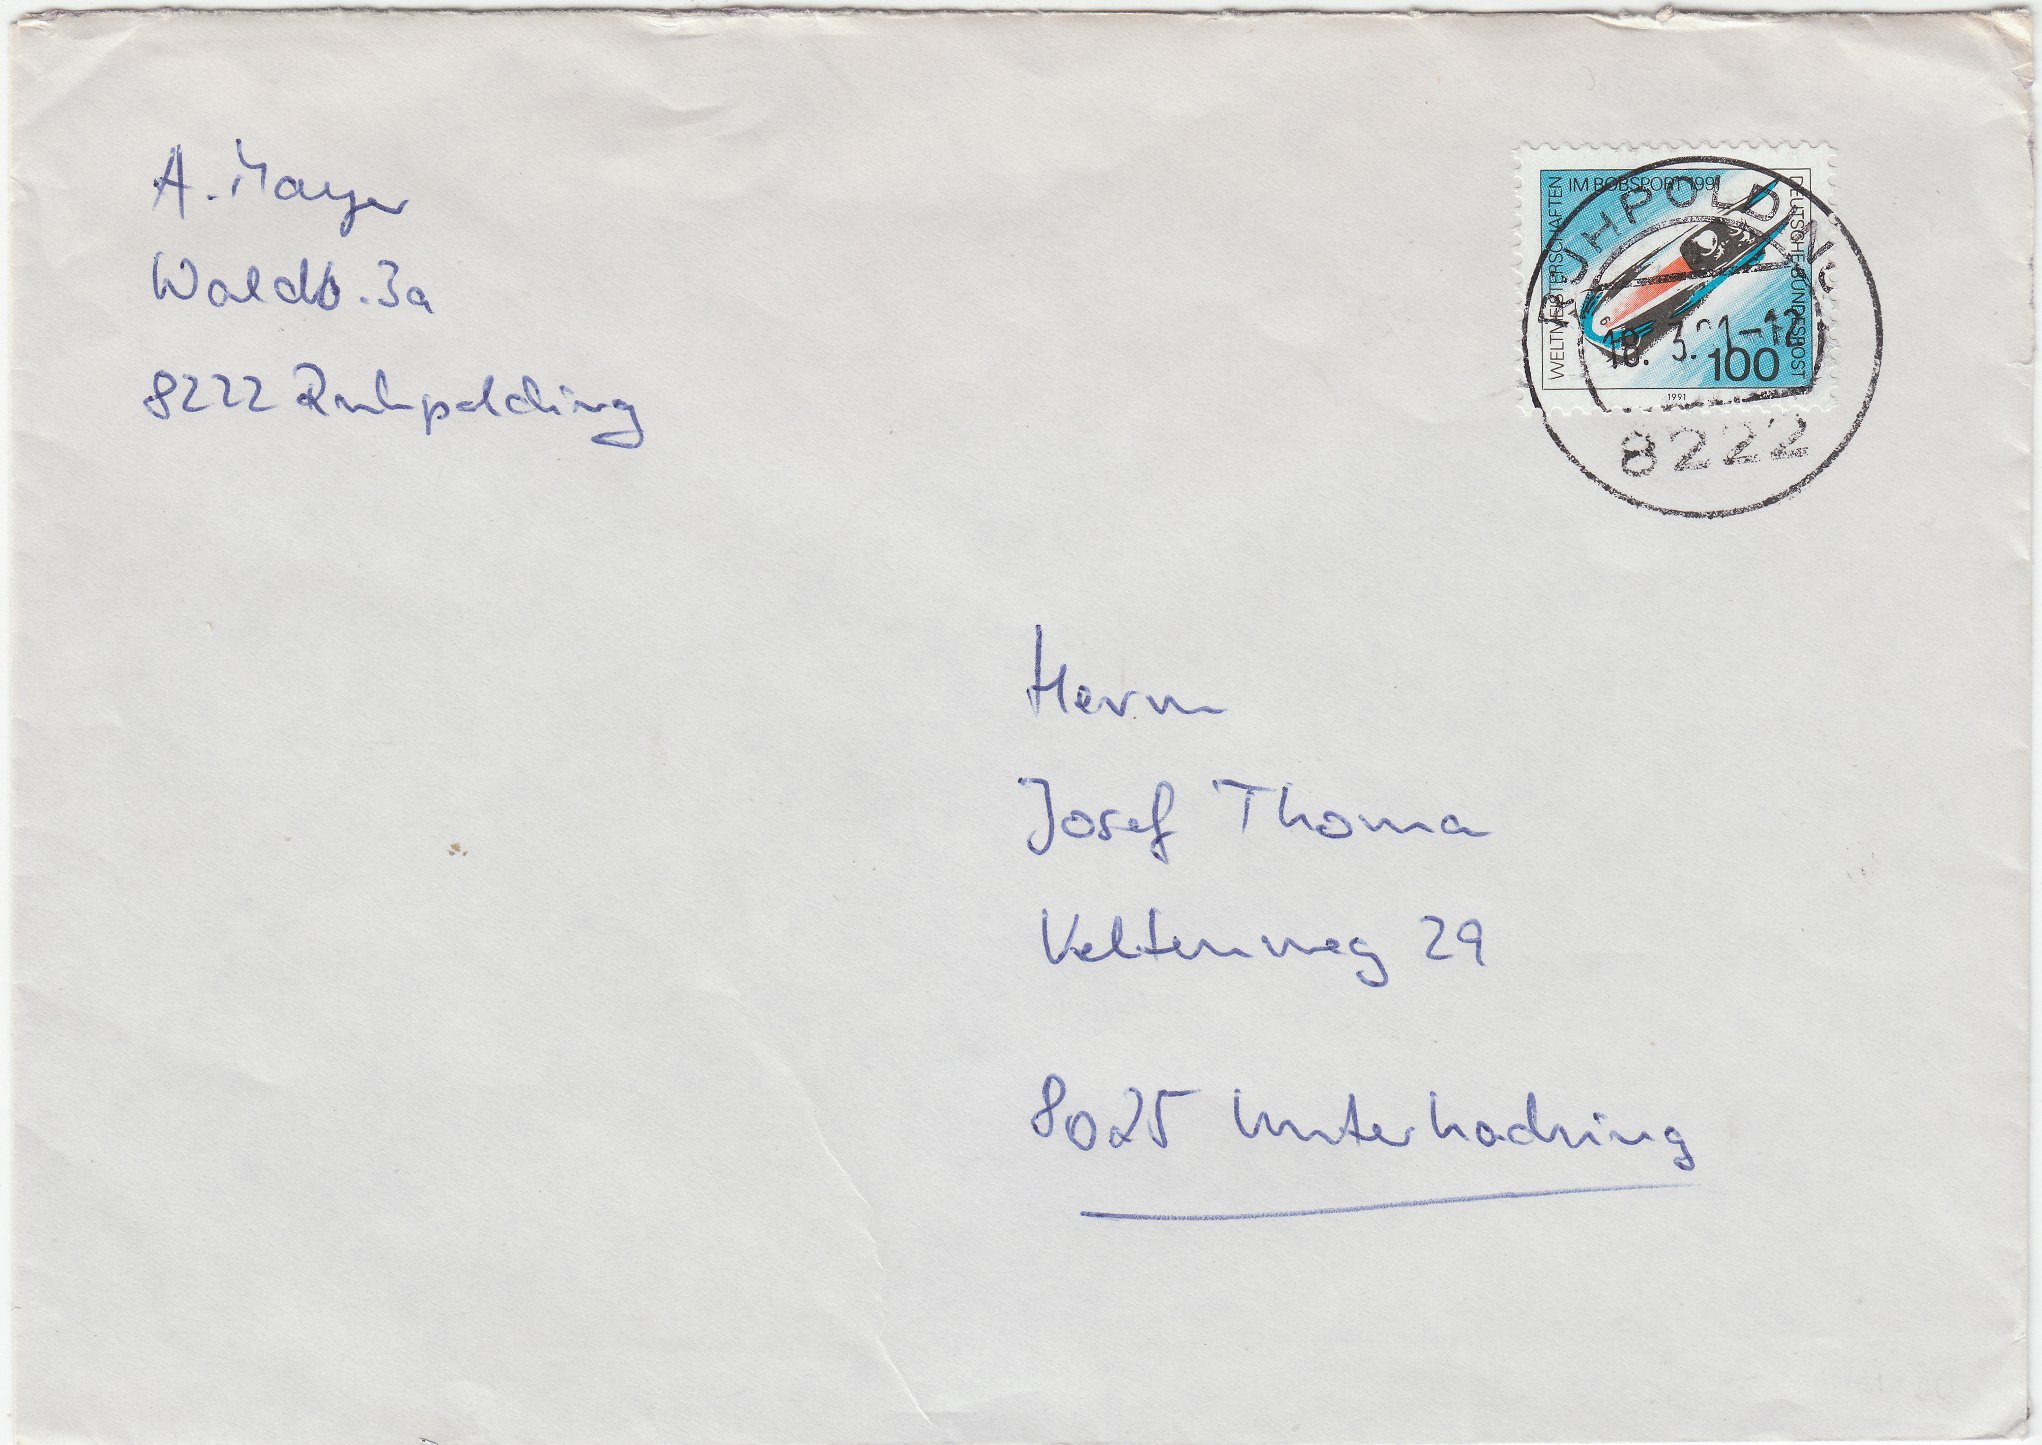 A. Mayer
Waldb. 3a
8222 Ruhpolding
WELTMEISTERSCHAFTEN
IM BOBSPORT 1991
DEUTSCHE BUNDESPOST
100
1991
RUHPOLDING
18. 3.91-12
8222
Herrn
Josef Thoma
Keltenweg 29
8025 Unterhaching